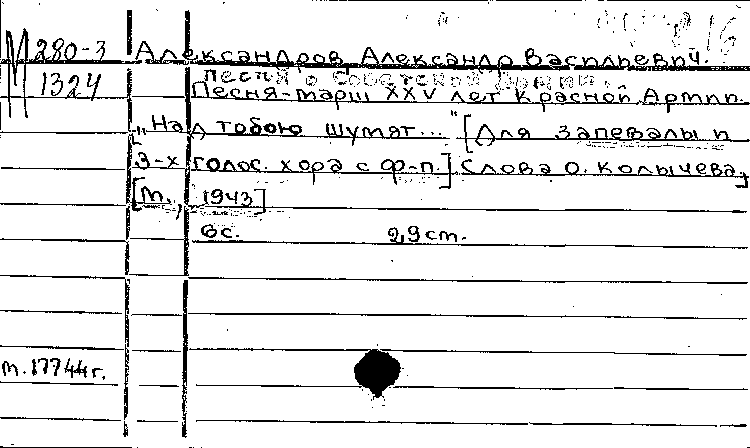 М 280-3
1324
Александров Александр Васильевич.
Песня о Советской Армии.
Песня-марш XXV лет Красной Армии.
["Над тобою шумят..." [Для запевалы и
3-х голос. хора с ф-п.] Слова О. Колычева.
[М., 1943]
8с. 29ст.
т.17744г.